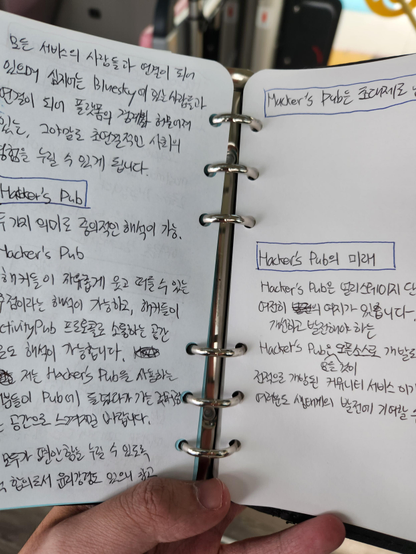 모든 서비스의 사람들과 연결이 되어
있으며 심지어는 Bluesky에 있는 사람들과
연결이 되어 플랫폼의 경계를 허물어져
있는, 그야말로 초연결적인 사회의
경험을 누릴 수 있게 됩니다.
Hacker's Pub
두 가지 의미로 중의적인 해석이 가능.
Hacker's Pub
해커들이 자유롭게 웃고 떠들 수 있는
주점이라는 해석이 가능하고, 해커들이
ActivityPub 프로토콜로 소통하는 공간
로도 해석이 가능합니다.
저는 Hacker's Pub을 사용하는
들이 Pub에 들렀다가 가는 것처럼
공간으로 느껴지면 바랍니다.
모두가 편안함을 누릴 수 있도록
합의로서 윤리강령도 있으니 참고
Hacker's Pub은 초대제로
Hacker's Pub의 미래
Hacker's Pub은 딜리스테이지 단
여전히 의 여지가 있습니다.
개선하고 발전해야 하는
Hacker's Pub는 오픈소스로 개발
모든 것이
전적으로 개방된 커뮤니티 서비스 이기
여러분도 생태계의 발전에 기여할 수